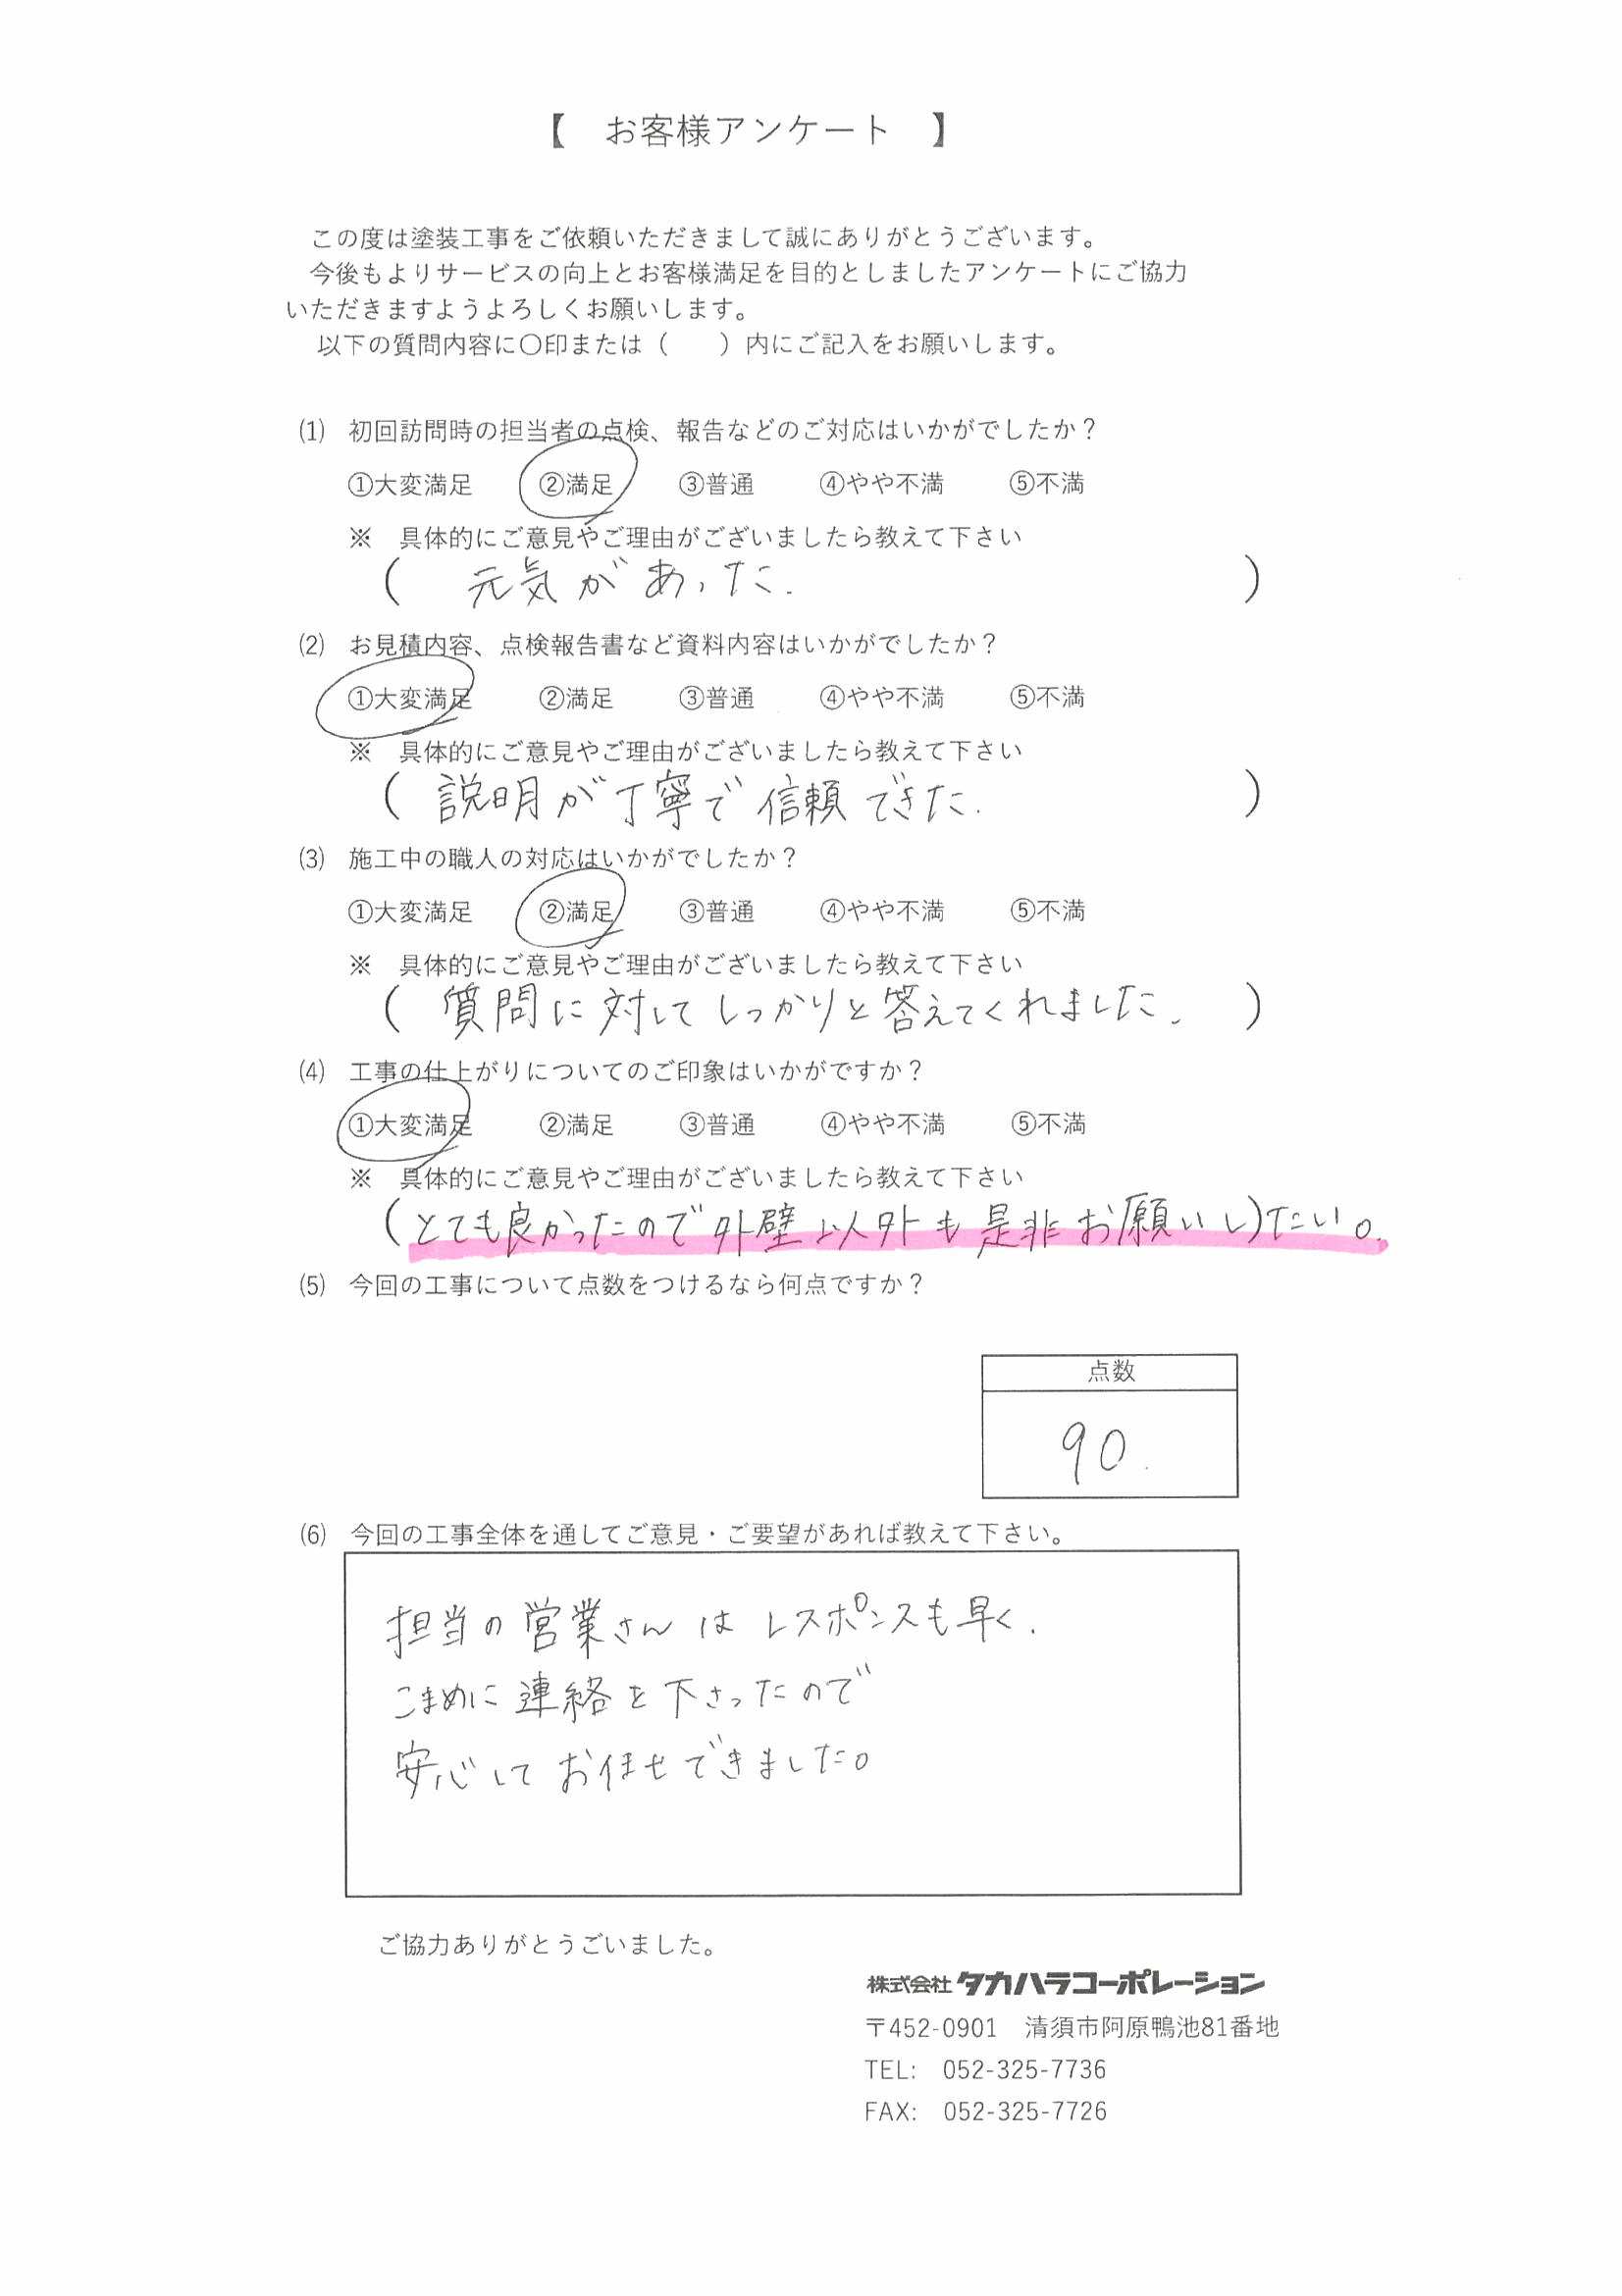 【　お客様アンケート　】
この度は塗装工事をご依頼いただきまして誠にありがとうございます。
今後もよりサービスの向上とお客様満足を目的としましたアンケートにご協力
いただきますようよろしくお願いします。
以下の質問内容に〇印または（　　）内にご記入をお願いします。
(1)　初回訪問時の担当者の点検、報告などのご対応はいかがでしたか？
①大変満足　②満足　③普通　④やや不満　⑤不満
※　具体的にご意見やご理由がございましたら教えて下さい
（　元気があった.　）
(2)　お見積内容、点検報告書など資料内容はいかがでしたか？
①大変満足　②満足　③普通　④やや不満　⑤不満
※　具体的にご意見やご理由がございましたら教えて下さい
（　説明が丁寧で信頼できた.　）
(3)　施工中の職人の対応はいかがでしたか？
①大変満足　②満足　③普通　④やや不満　⑤不満
※　具体的にご意見やご理由がございましたら教えて下さい
（　質問に対してしっかりと答えてくれました.　）
(4)　工事の仕上がりについてのご印象はいかがですか？
①大変満足　②満足　③普通　④やや不満　⑤不満
※　具体的にご意見やご理由がございましたら教えて下さい
（とても良かったので外壁以外も是非お願いし）たい。
(5)　今回の工事について点数をつけるなら何点ですか？
点数
90.
(6)　今回の工事全体を通してご意見・ご要望があれば教えて下さい。
担当の営業さんはレスポンスも早く.
こまめに連絡を下さったので
安心してお任せできました。
ご協力ありがとうごいました。
株式会社 タカハラコーポレーション
〒452-0901　清須市阿原鴨池81番地
TEL:　052-325-7736
FAX:　052-325-7726